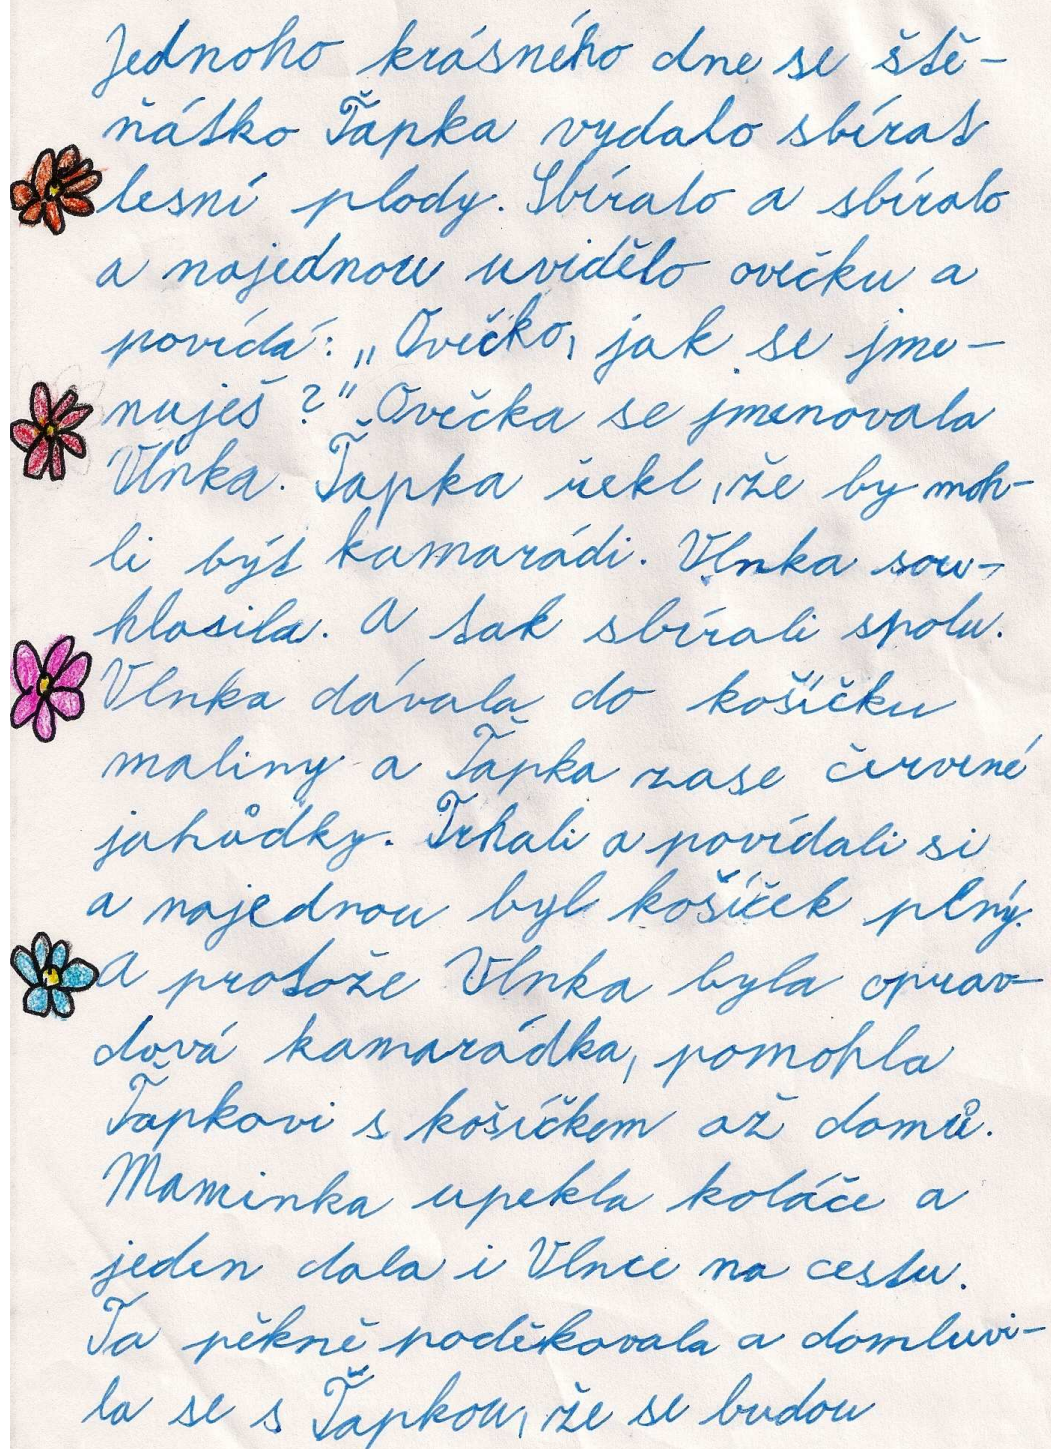 Jednoho krásného dne se ště-
ňátko Ťapka vydalo sbírat
lesní plody. Sbíralo a sbíralo
a najednou uvidělo ovečku a
povídá: „Ovečko, jak se jme-
nuješ?" Ovečka se jmenovala
Vlnka. Ťapka řekl, že by moh-
li být kamarádi. Vlnka sou-
hlasila. A tak sbírali spolu.
Vlnka dávala do košíčku
maliny a Ťapka zase červené
jahůdky. Trhali a povídali si
a najednou byl košíček plný.
A protože Vlnka byla oprav-
dová kamarádka, pomohla
Ťapkovi s košíčkem až domů.
Maminka upekla koláče a
jeden dala i Vlnce na cestu.
Ta pěkně poděkovala a domluvi-
la se s Ťapkou, že se budou